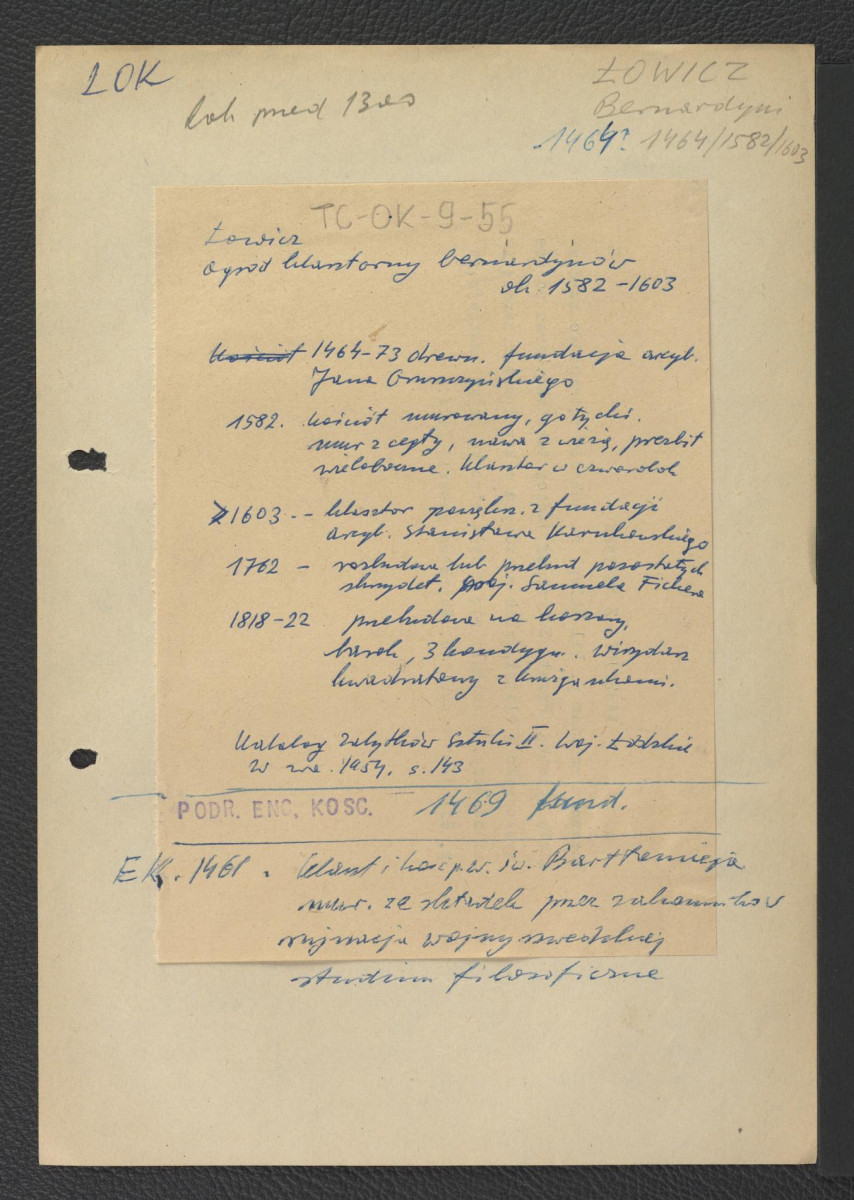 ŁOK
ŁOWICZ
Rok przed 1300
Bernardyni
1464? 1464/1582/1603
TC-OK-9-55
Łowicz
ogród klasztorny bernardynów
ok. 1582-1603
Kościół 1464-73 drewn. fundacja arcyb.
Jana Gruszczyńskiego
1582. kościół murowany, gotycki.
mur z cegły, nawa z wieżą, prezbit
wieloboczne. Klasztor w czworobok
1603 - klasztor powiększ. z fundacji
arcyb. Stanisława Karnkowskiego
1762 - rozbudowa lub przebud pozostałych
skrzydeł. proj. Samuela Fichera
1818-22 przebudowa na koszary,
barok, 3 kondygn. wirydarz
kwadratowy z krużgankami.
Katalog zabytków Sztuki II. woj. Łódzkie
W-wa. 1954, s. 143
PODR. ENC. KOSC. 1469 fund.
EK. 1461. Klaszt i kość p.w. św. Bartłomieja
mur. ze składek przez zakonników
rujnacja wojny szwedzkiej
studium filozoficzne